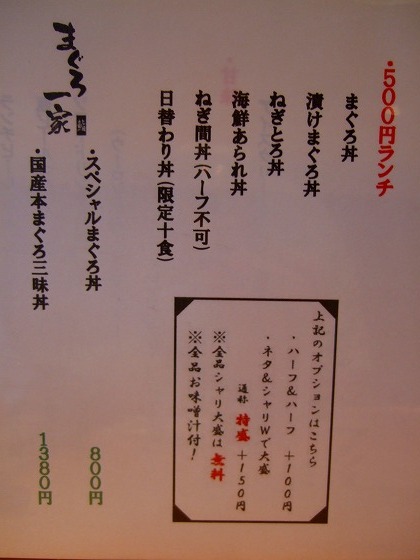 ・500円ランチ
まぐろ丼
漬けまぐろ丼
ねぎとろ丼
海鮮あられ丼
ねぎ間丼(ハーフ不可)
日替わり丼(限定十食)
上記のオプションはこちら
・ハーフ&ハーフ +100円
・ネタ&シャリWで大盛
通称 特盛 +150円
※全品シャリ大盛は無料
※全品お味噌汁付!
まぐろ一家
・スペシャルまぐろ丼 800円
・国産本まぐろ三昧丼 1380円